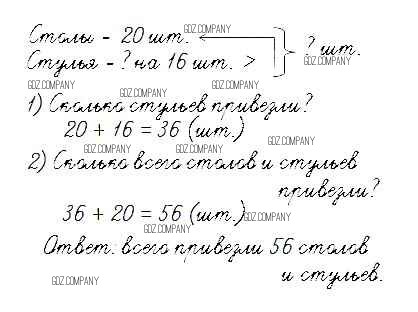 Столы – 20 шт.
GDZ.COMPANY
Стулья – ? на 16 шт. >
? шт.
GDZ.COMPANY
GDZ.COMPANY
GDZ.COMPANY
GDZ.COMPANY
1) Сколько стульев привезли?
20 + 16 = 36 (шт.)
GDZ.COMPANY
GDZ.COMPANY
GDZ.COMPANY
2) Сколько всего столов и стульев
привезли?
36 + 20 = 56 (шт.)
GDZ.COMPANY
GDZ.COMPANY
Ответ: всего привезли 56 столов
и стульев.
GDZ.COMPANY